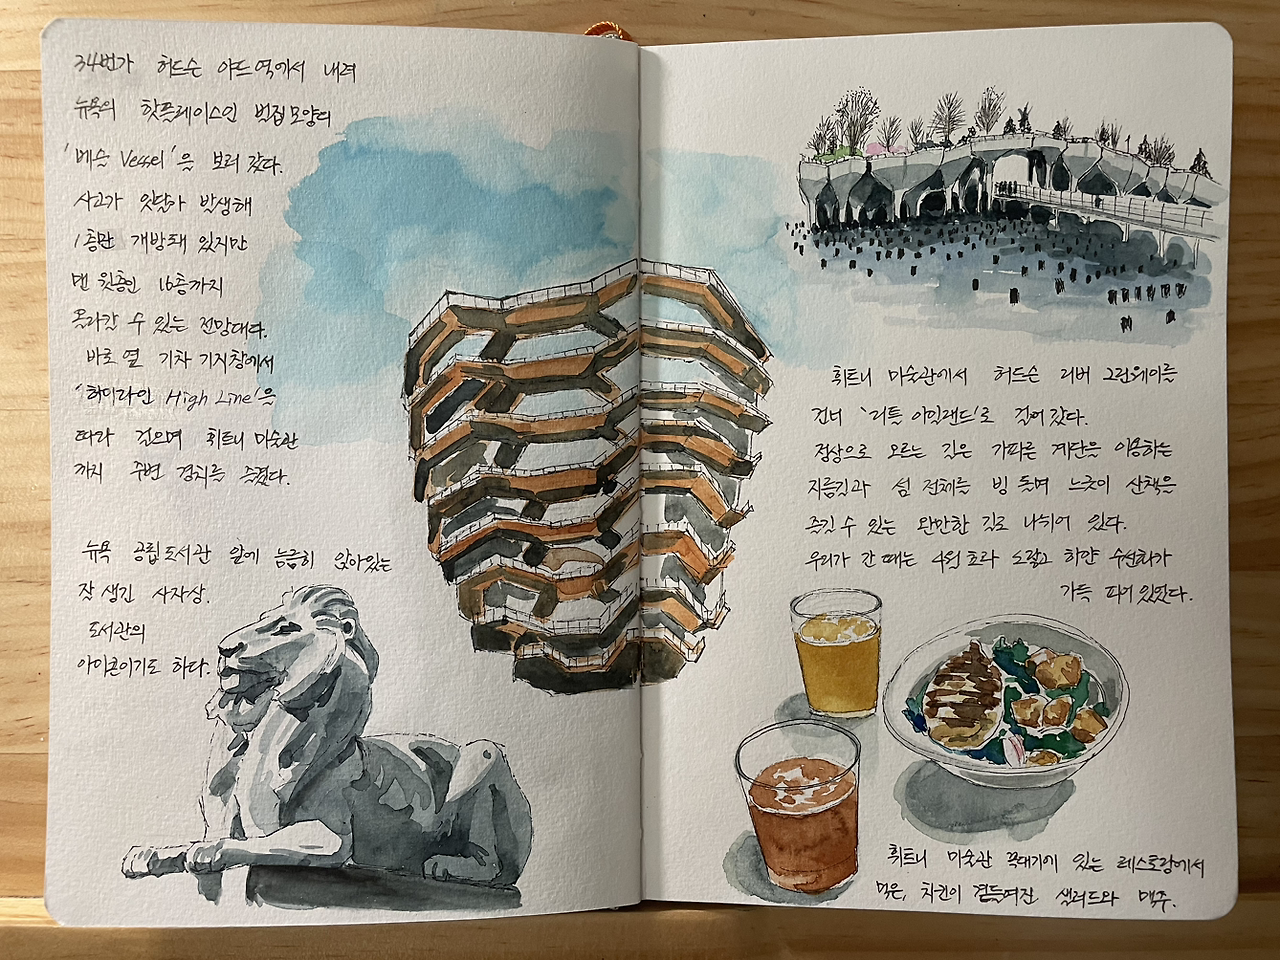 34번가 허드슨 야드역에서 내려
뉴욕의 핫플레이스인 벌집모양의
'베슬 Vessel'을 보러 갔다.
사고가 잇달아 발생해
1층만 개방돼 있지만
맨 윗층인 16층까지
올라갈 수 있는 전망대다.
바로 옆 기차 기지창에서
'하이라인 High Line'을
따라 걸으며 휘트니 미술관
까지 주변 경치를 즐겼다.
뉴욕 공립도서관 앞에 늠름히 앉아있는
잘 생긴 사자상.
도서관의
아이콘이기도 하다.
휘트니 미술관에서 허드슨 리버 그린웨이를
건너 '리틀 아일랜드'로 걸어 갔다.
정상으로 오르는 길은 가파른 계단을 이용하는
지름길과 섬 전체를 빙 돌며 느긋이 산책을
즐길 수 있는 완만한 길로 나뉘어 있다.
우리가 간 때는 4월 초라 노랗고 하얀 수선화가
가득 피어있었다.
휘트니 미술관 꼭대기에 있는 레스토랑에서
먹은, 치킨이 곁들여진 샐러드와 맥주.